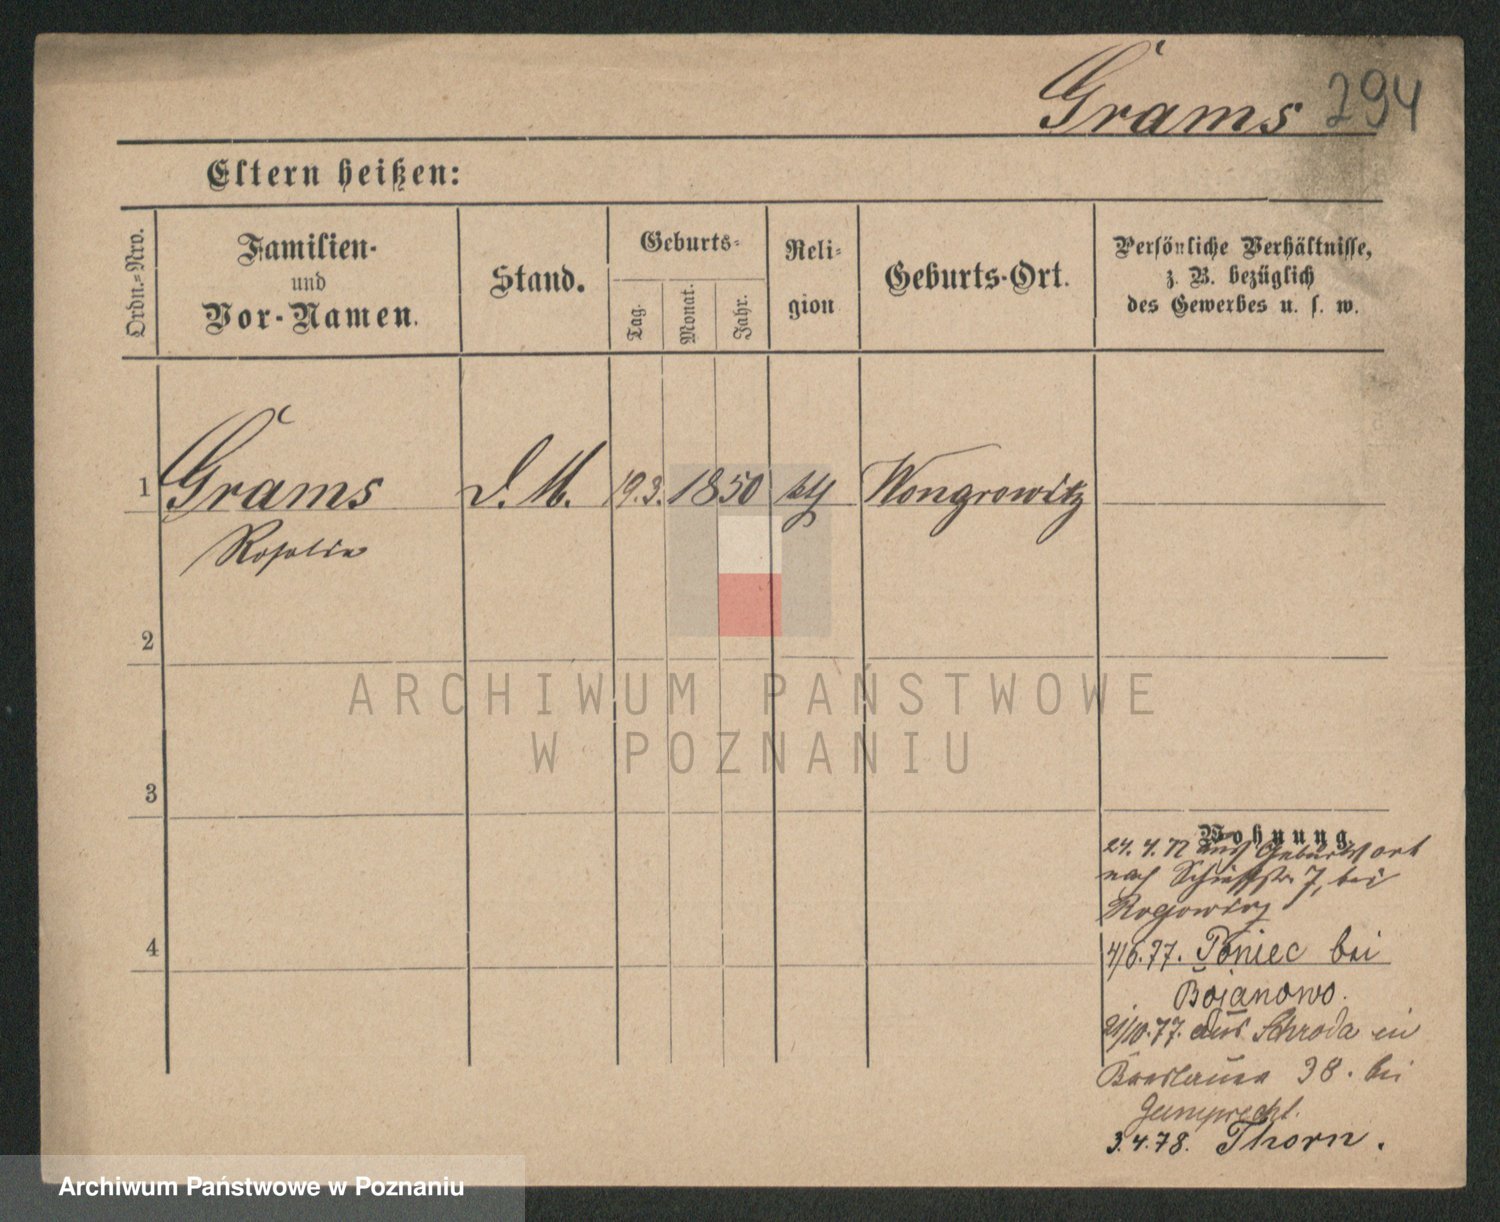 Grams 294
Eltern heißen:
Ordn.-Nro.
Familien-
und
Vor-Namen.
Stand.
Geburts-
Tag.
Monat.
Jahr.
Reli-
gion
Geburts-Ort.
Persönliche Verhältnisse,
z. B. bezüglich
des Gewerbes u. s. w.
1 Grams D. M. 19.3. 1850 Wongrowitz
Rosalie
2
3
4
ARCHIWUM PAŃSTWOWE
W POZNANIU
Wohnung
24. 4. 77 aus Geburtsort
nach 7, bei
4/6.77. Poniec bei
Bojanowo.
21/10.77. aus Schroda in
Breslauer 38. bei
Gumprecht.
3.4.78. Thorn.
Archiwum Państwowe w Poznaniu